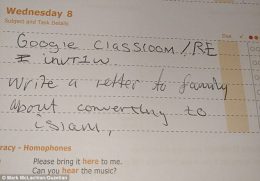 Wednesday 8
Subject and Task Details
Due
Google Classroom / RE
I unitiw
write a letter to family
about converting to
islam,
racy - Homophones
Please bring it here to me.
Can you hear the music?
© Mark McLachlan-Quinlan